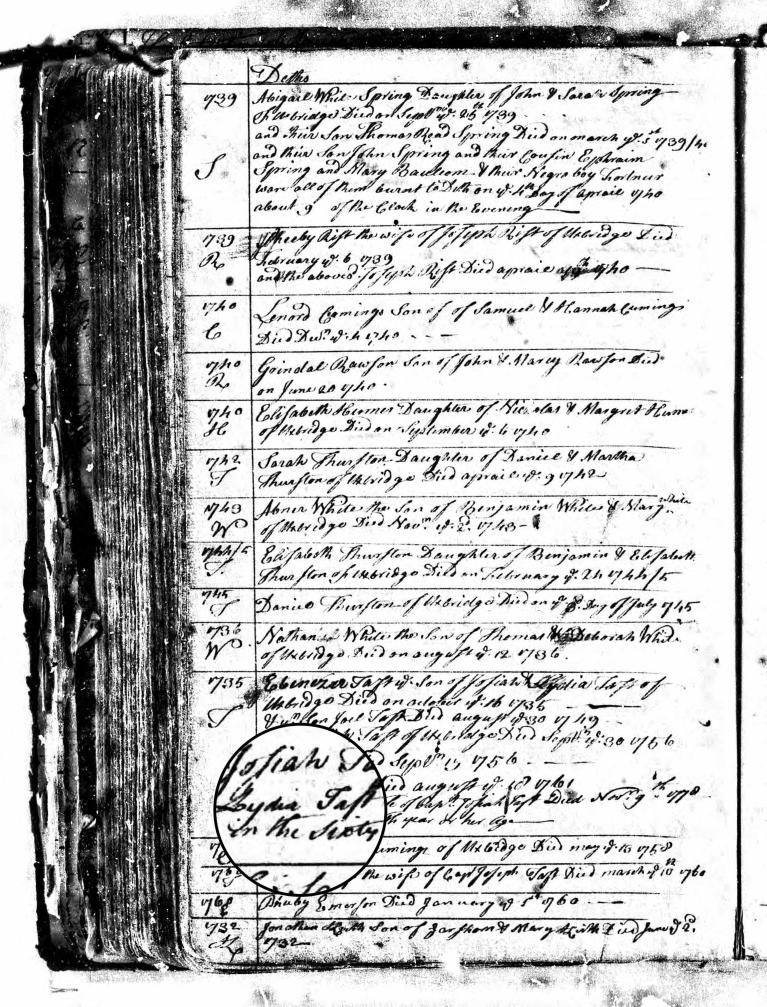 Deths
1739 Abigail White Spring Daughter of John & Sarah Spring
of Uxbridge Died on Sept ye. 25th 1739
and their Son Thomas Read Spring Died on march ye. 5t 1739/40
S and their Son John Spring and their Cousin Ephraim
Spring and Mary & their Negro boy
ware all of them burnt to Deth on ye. 4th Day of apraie 1740
about 9 of the Clock in the Evening
1739 Pheeby Rist the wife of Joseph Rist of Uxbridge Died
R February ye. 6 1739
and the aboved Joseph Rist Died apraie 1740
1740 Lenord Comings Son of of Samuel & Hannah Cumings
C Died Decr. ye. 4 1740
1740 Grindal Rawson Son of John & Marcy Rawson Died
R on June 20 1740
1740 Elisabeth Daughter of Nicholas & Margret
H of Uxbridge Died on September ye. 6 1740
1742 Sarah Thurston Daughter of Daniel & Martha
T Thurston of Uxbridge Died apraie ye. 9 1742
1743 Abner White the Son of Benjamin White & Mary White
W of Uxbridge Died Novr. ye. 2. 1743
1744/5 Elisabeth Thurston Daughter of Benjamin & Elisabeth
T. Thurston of Uxbridge Died on February ye. 24 1744/5
1745 Daniel Thurston of Uxbridge Died on ye Day of July 1745
T
1736 Nathan White the Son of Thomas & Deborah White
W of Uxbridge Died on august ye. 12 1736.
1735 Ebenezer Taft ye. Son of Josiah & Lydia Taft of
T Uxbridge Died on october ye. 16 1735
Son Joel Taft Died august ye. 30 1749
Taft of Uxbridge Died Septr. ye. 30 1756
Josiah Septr. 19 1756
Died august ye. 18 1761
Lydia Taft of Capt. Josiah Taft Died Novr. 9th 1778
in the Sixty year of her Age
umings of Uxbridge Died may ye. 13 1758
the wife of Capt Joseph Taft Died march ye 10th 1760
Emerson Died January ye 5t 1760
1732 Jonathan Keith Son of & Mary Keith Died June ye 2d.
K 1732